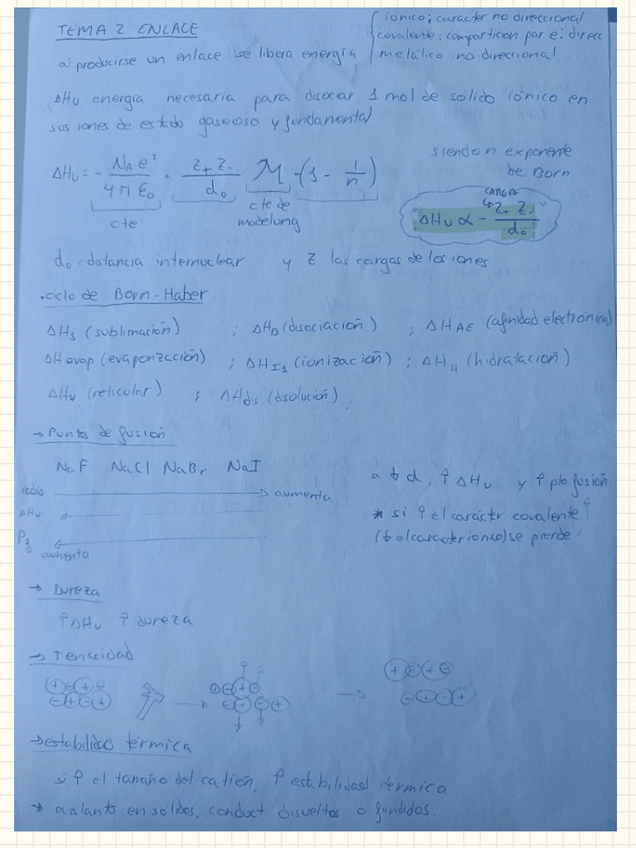 TEMA 2 ENLACE
iónico: carácter no direccional
covalente: compartición par e: direcc
metálico no direccional
al producirse un enlace se libera energía
ΔHu energía necesaria para disociar 1 mol de sólido iónico en
sus iones de estado gaseoso y fundamental
ΔHu = - NA e² / 4 π ε0 · Z+ Z- / d0 M · (1 - 1/n)
siendo n exponente
de Born
cte
cte de
madelung
CARGAS
ΔHu ∝ - Z+ Z- / d0
d0 = distancia internuclear y Z las cargas de los iones
·ciclo de Born-Haber
ΔHs (sublimación) ; ΔHD (disociación) ; ΔHAE (afinidad electrónica)
ΔHevap (evaporización) ; ΔHI1 (ionización) ; ΔHH (hidratación)
ΔHu (reticular) ; ΔHdis (disolución)
→ Puntos de fusión
NaF NaCl NaBr NaI
radio → aumenta
ΔHu
Pf
aumenta
a ↓ d, ↑ ΔHu y ↑ pto fusión
* si ↑ el carácter covalente
(↓ el caracter iónico) se pierde
→ Dureza
↑ΔHu ↑ dureza
→ Tenacidad
→ estabilidad térmica
si ↑ el tamaño del catión, ↑ estabilidad térmica
→ aislants en sólidos, conduct disueltos o fundidos.